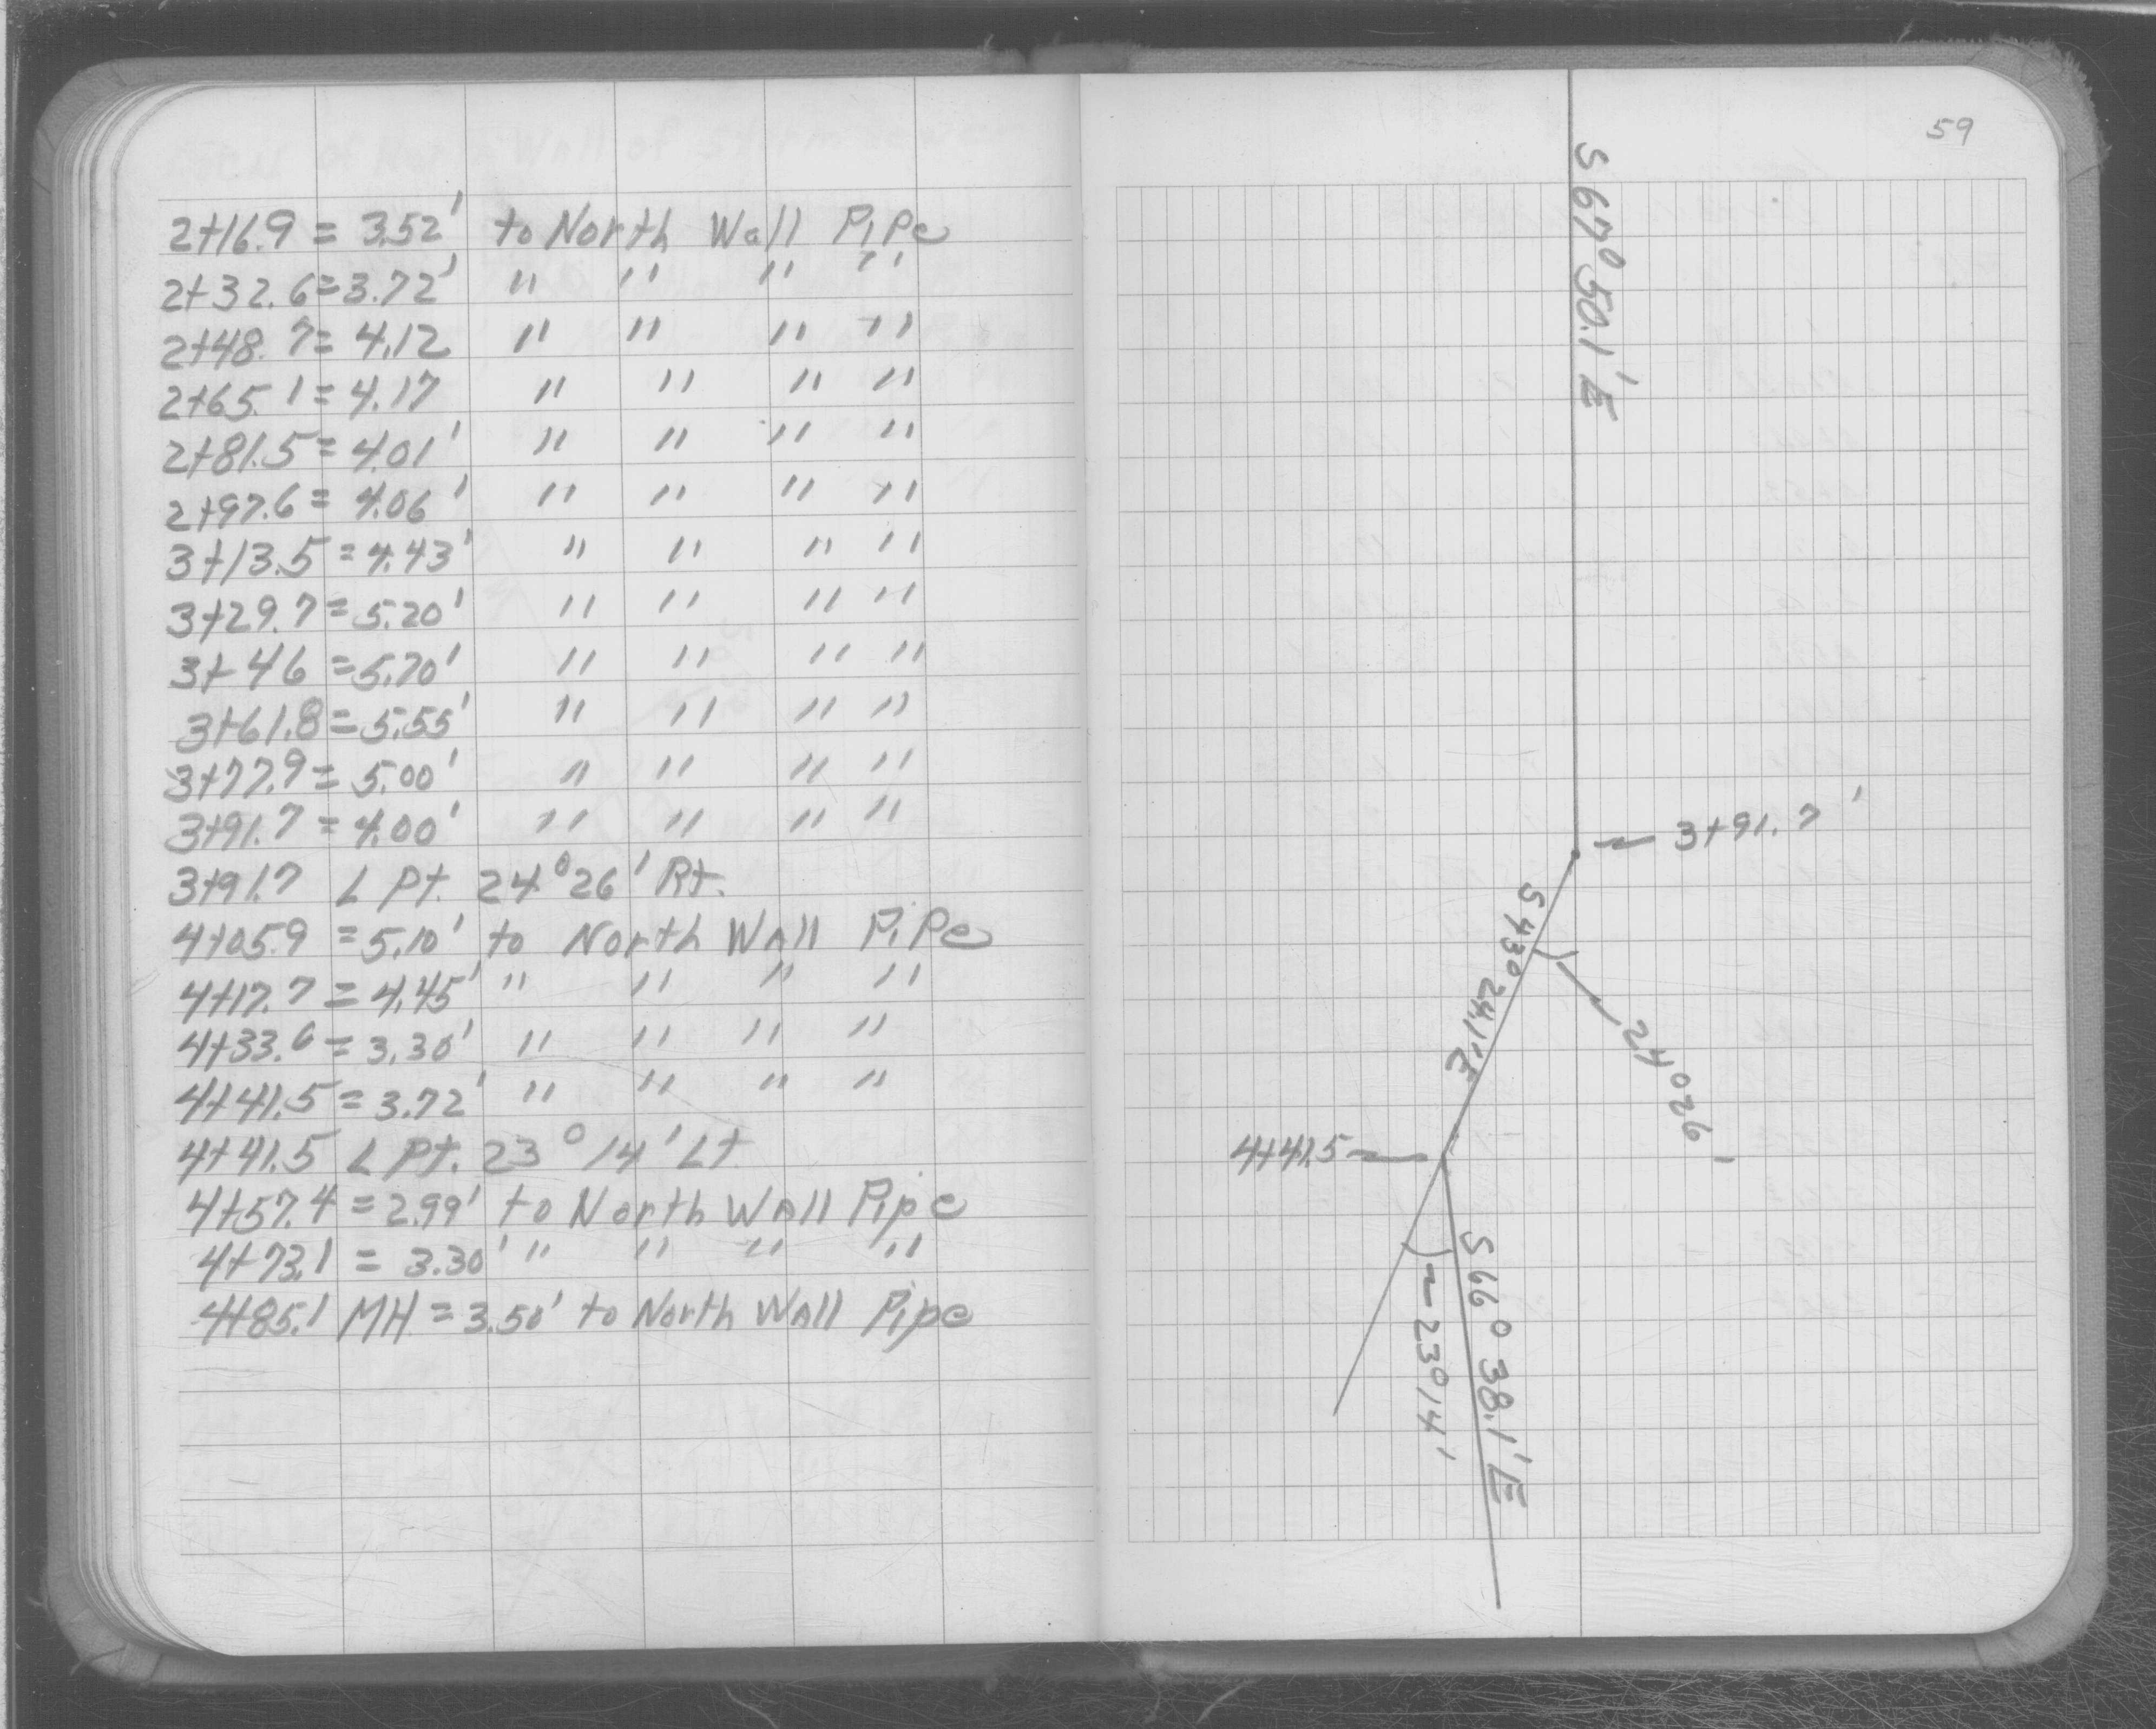 2+16.9 = 3.52' to North Wall Pipe
2+32.6 = 3.72' " " " "
2+48.7 = 4.12 " " " "
2+65.1 = 4.17 " " " "
2+81.5 = 4.01' " " " "
2+97.6 = 4.06' " " " "
3+13.5 = 4.43' " " " "
3+29.7 = 5.20' " " " "
3+46 = 5.70' " " " "
3+61.8 = 5.55' " " " "
3+77.9 = 5.00' " " " "
3+91.7 = 4.00' " " " "
3+91.7 ∠ Pt. 24°26' Rt.
4+05.9 = 5.10' to North Wall Pipe
4+17.7 = 4.45' " " " "
4+33.6 = 3.30' " " " "
4+41.5 = 3.72' " " " "
4+41.5 ∠ Pt. 23°14' Lt
4+57.4 = 2.99' to North Wall Pipe
4+73.1 = 3.30' " " " "
4+85.1 MH = 3.50' to North Wall Pipe
59
S 67° 50.1' E
3+91.7'
S 43° 24.1' E
24° 26'
4+41.5
S 66° 38.1' E
23° 14'